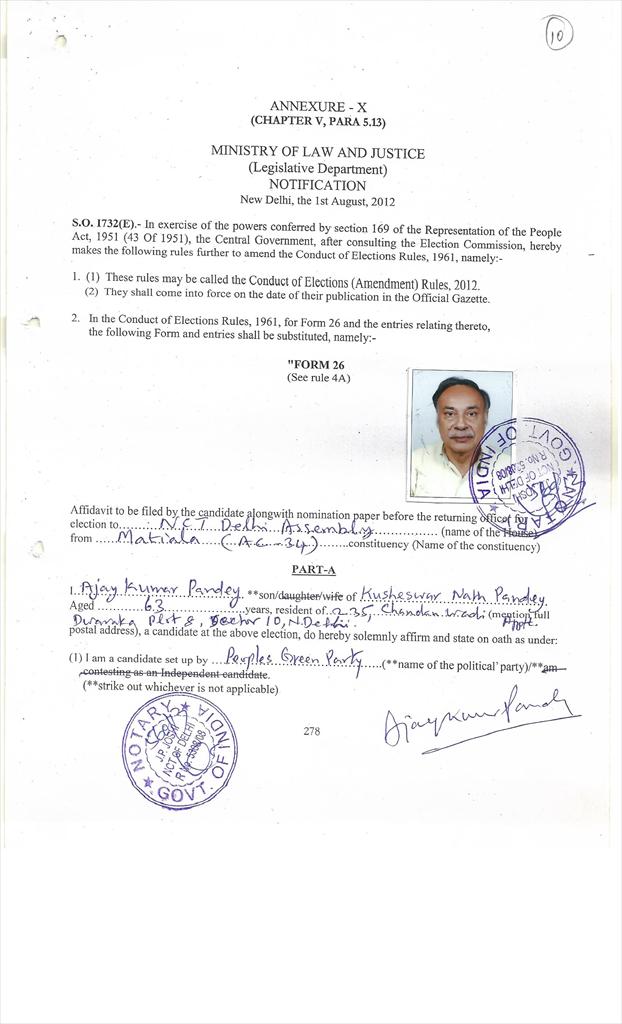 10
ANNEXURE - X
(CHAPTER V, PARA 5.13)
MINISTRY OF LAW AND JUSTICE
(Legislative Department)
NOTIFICATION
New Delhi, the 1st August, 2012
S.O. 1732(E).- In exercise of the powers conferred by section 169 of the Representation of the People
Act, 1951 (43 Of 1951), the Central Government, after consulting the Election Commission, hereby
makes the following rules further to amend the Conduct of Elections Rules, 1961, namely:-
1. (1) These rules may be called the Conduct of Elections (Amendment) Rules, 2012.
(2) They shall come into force on the date of their publication in the Official Gazette.
2. In the Conduct of Elections Rules, 1961, for Form 26 and the entries relating thereto,
the following Form and entries shall be substituted, namely:-
"FORM 26
(See rule 4A)
NOTARY GOVT. OF INDIA
J.P. JOSHI
NCT OF DELHI
R.No. 5308/08
Affidavit to be filed by the candidate alongwith nomination paper before the returning officer for
election to......N.C.T. Delhi Assembly................ (name of the House)
from .....Matiala.....(.A.C.-34).........constituency (Name of the constituency)
PART-A
I. Ajay Kumar Pandey. **son/daughter/wife of Kusheswar Nath Pandey
Aged ............63....................years, resident of..235, Chandanwadi (mention full
Appt.
Dwarka Plot 8, Sector 10, N.Delhi.
postal address), a candidate at the above election, do hereby solemnly affirm and state on oath as under:
(1) I am a candidate set up by ....Peoples Green Party.....(**name of the political party)/**am
contesting as an Independent candidate.
(**strike out whichever is not applicable)
278
Ajay Kumar Pandey
NOTARY GOVT. OF INDIA
J.P. JOSHI
NCT OF DELHI
R.No. 5308/08